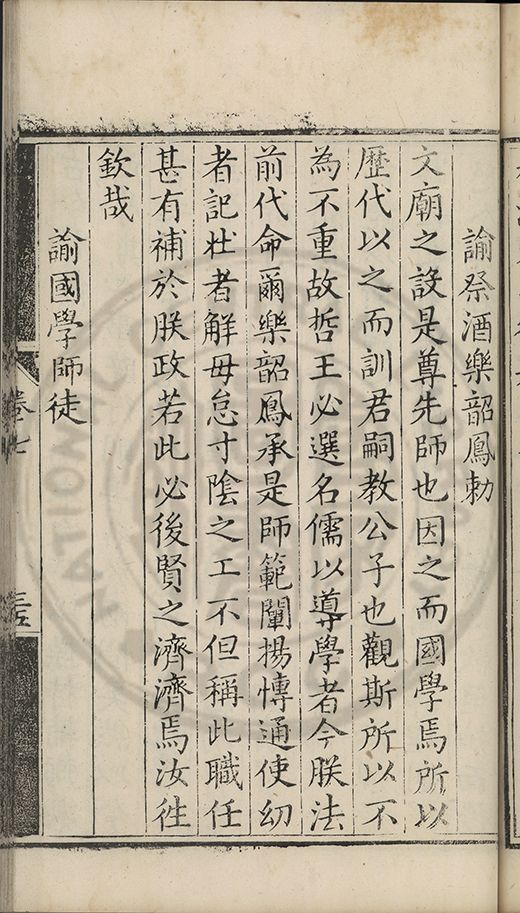 諭祭酒樂韶鳳勅
文廟之設是尊先師也因之而國學焉所以
歷代以之而訓君嗣教公子也觀斯所以不
為不重故哲王必選名儒以導學者今朕法
前代命爾樂韶鳳承是師範闡揚博通使幼
者記壯者解毋怠寸陰之工不但稱此職任
甚有補於朕政若此必後賢之濟濟焉汝往
欽哉
諭國學師徒
卷七
NATIONAL